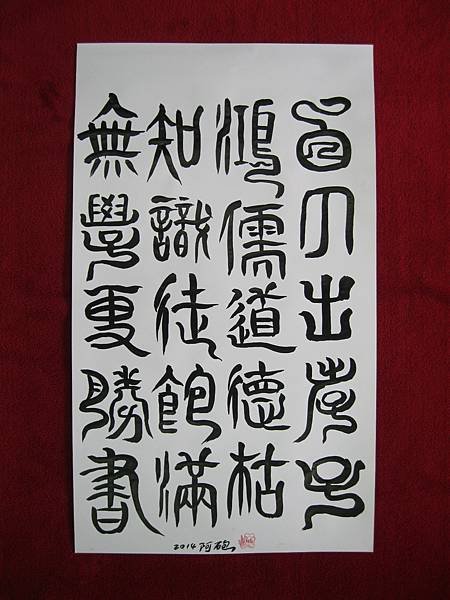 出孝子
鴻儒道德枯
知識徒飽滿
無學更勝書
2014 阿砲